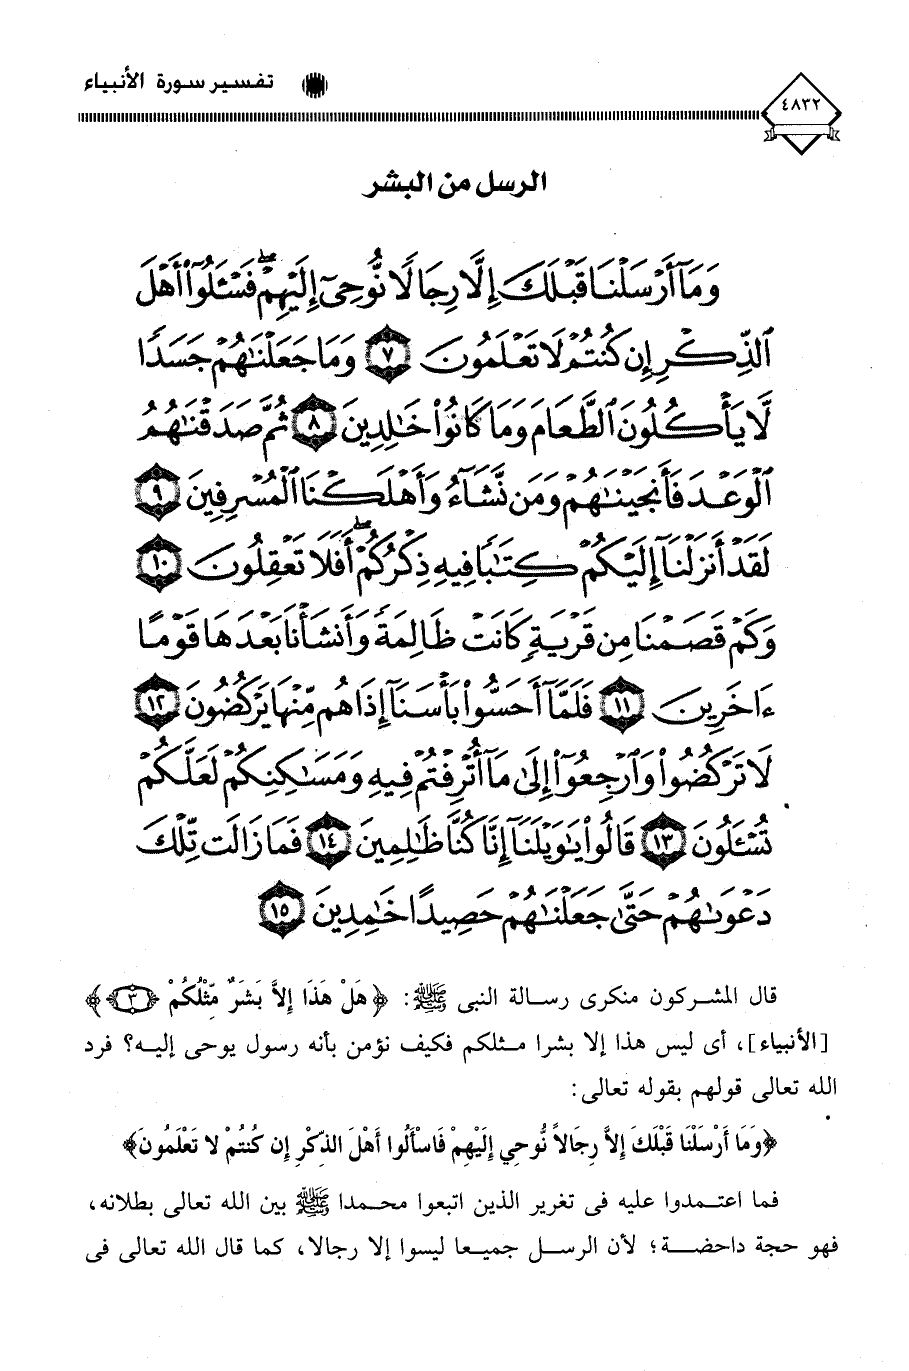 ٤٨٣٢
تفسير سورة الأنبياء
الرسل من البشر
وَمَآ أَرْسَلْنَا قَبْلَكَ إِلَّا رِجَالًا نُّوحِىٓ إِلَيْهِمْ ۖ فَسْـَٔلُوٓا۟ أَهْلَ
ٱلذِّكْرِ إِن كُنتُمْ لَا تَعْلَمُونَ ٧ وَمَا جَعَلْنَـٰهُمْ جَسَدًا
لَّا يَأْكُلُونَ ٱلطَّعَامَ وَمَا كَانُوا۟ خَـٰلِدِينَ ٨ ثُمَّ صَدَقْنَـٰهُمُ
ٱلْوَعْدَ فَأَنجَيْنَـٰهُمْ وَمَن نَّشَآءُ وَأَهْلَكْنَا ٱلْمُسْرِفِينَ ٩
لَقَدْ أَنزَلْنَآ إِلَيْكُمْ كِتَـٰبًا فِيهِ ذِكْرُكُمْ ۖ أَفَلَا تَعْقِلُونَ ١٠
وَكَمْ قَصَمْنَا مِن قَرْيَةٍ كَانَتْ ظَالِمَةً وَأَنشَأْنَا بَعْدَهَا قَوْمًا
ءَاخَرِينَ ١١ فَلَمَّآ أَحَسُّوا۟ بَأْسَنَآ إِذَا هُم مِّنْهَا يَرْكُضُونَ ١٢
لَا تَرْكُضُوا۟ وَٱرْجِعُوٓا۟ إِلَىٰ مَآ أُتْرِفْتُمْ فِيهِ وَمَسَـٰكِنِكُمْ لَعَلَّكُمْ
تُسْـَٔلُونَ ١٣ قَالُوا۟ يَـٰوَيْلَنَآ إِنَّا كُنَّا ظَـٰلِمِينَ ١٤ فَمَا زَالَت تِّلْكَ
دَعْوَىٰهُمْ حَتَّىٰ جَعَلْنَـٰهُمْ حَصِيدًا خَـٰمِدِينَ ١٥
قال المشركون منكرى رسالة النبى ﷺ: ﴿هَلْ هَذَا إِلاَّ بَشَرٌ مِّثْلُكُمْ ٣﴾
[الأنبياء]، أى ليس هذا إلا بشرا مثلكم فكيف نؤمن بأنه رسول يوحى إليه؟ فرد
الله تعالى قولهم بقوله تعالى:
﴿وَمَا أَرْسَلْنَا قَبْلَكَ إِلاَّ رِجَالاً نُّوحِي إِلَيْهِمْ فَاسْأَلُوا أَهْلَ الذِّكْرِ إِن كُنتُمْ لا تَعْلَمُونَ﴾
فما اعتمدوا عليه فى تغرير الذين اتبعوا محمدا ﷺ بين الله تعالى بطلانه،
فهو حجة داحضة؛ لأن الرسل جميعا ليسوا إلا رجالا، كما قال الله تعالى فى